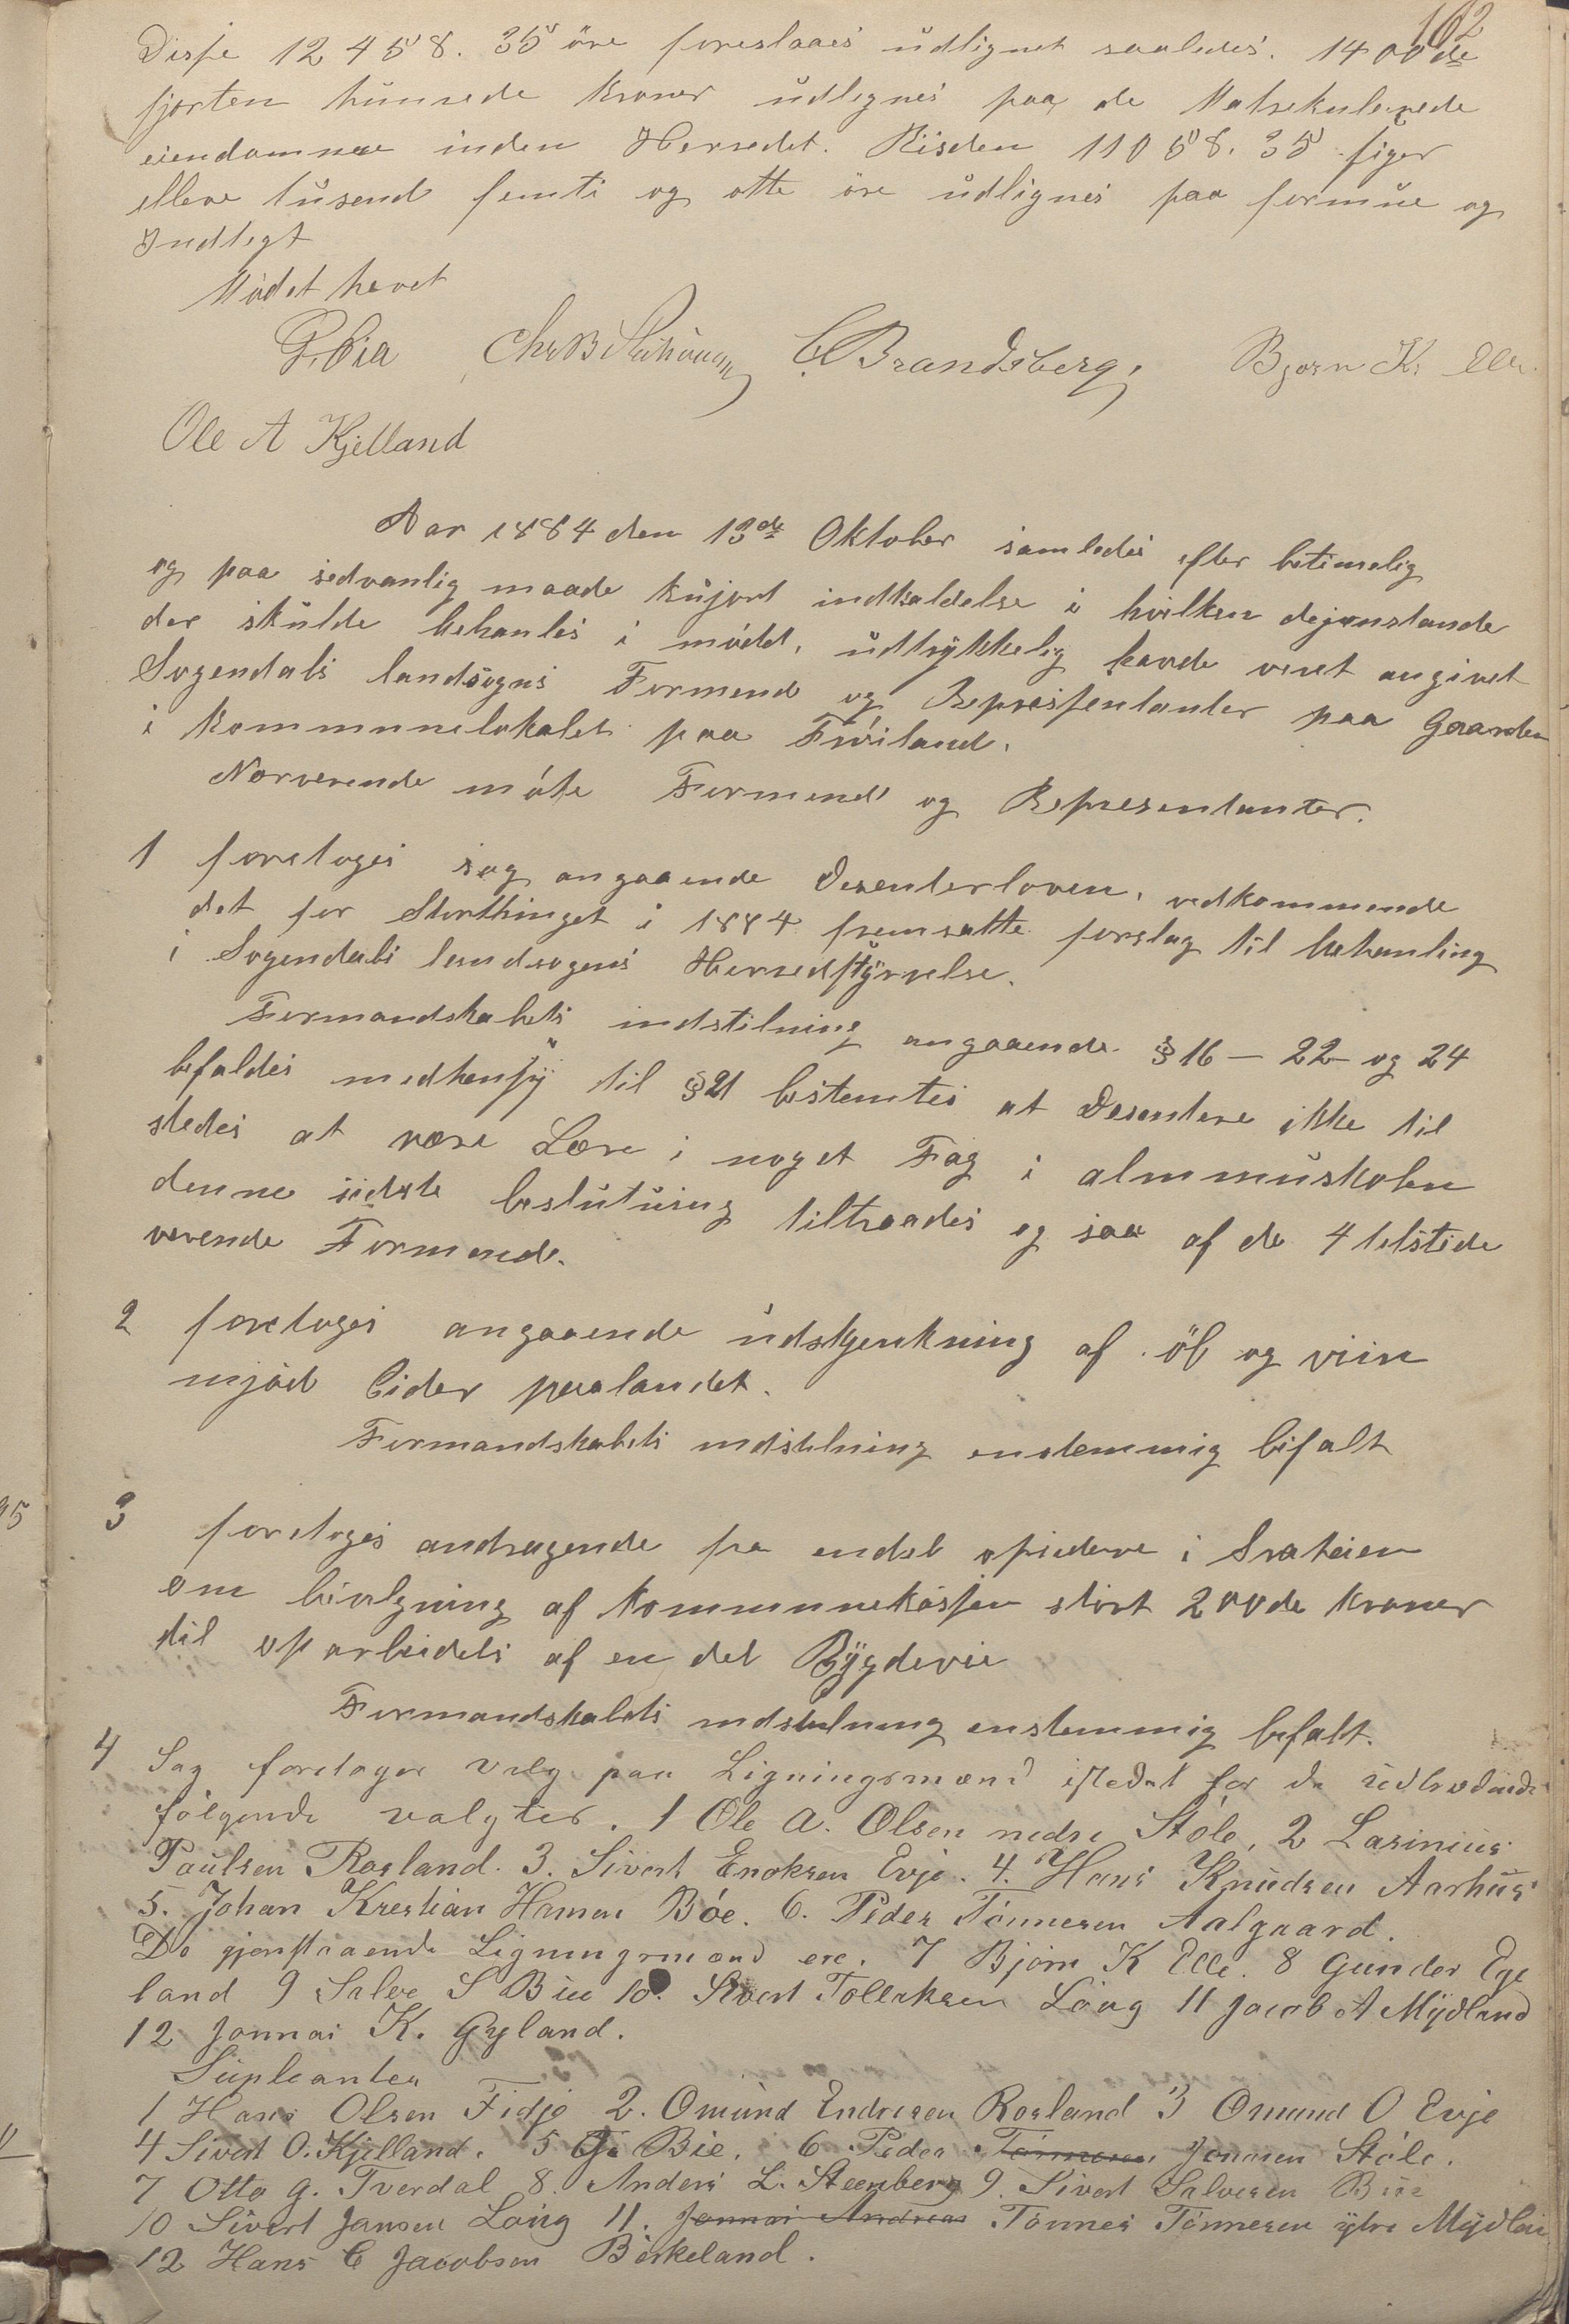 162
Disse 12458. 35 öre foreslaaes udlignet saaledes. 1400de
fjorten hunrede Kroner udlignes paa de Matrekulerede
eiendomme inden Herredet. Risden 11058. 35 siger
elleve tusend femti og otte öre udlignes paa formue og
Indtegt
Mödet hevet
Chr B C. Brandsberg Bjorn K. Elle
Ole A Kjelland
Aar 1884 den 13de Oktober samledes efter betimelig
og paa sedvanlig maade kujort indkaldelse i hvilken dejenstande
der skulde behanles i mödet, udtrykkelig havde veret angivet
Sogendals landsogns Formend og Represseutanter paa Gaarden
i Kommunelokalet paa Fröiland.
Nerverende möte Formend og Representanter.
1 foretoges sag angaaende Desenterloven, vedkommende
det for Storthinget i 1884 fremsatte forslag til behanling
i Sogendals landsogens Herredstyrelse.
Formandskabets indstilning angaaende § 16 - 22 og 24
befaldes medhensy til § 21 bestemtes at Desentere ikke til
stedes at være Lære i noget Fag i almmuskolen
denne sidste beslutning tiltraades og saa af de 4 telstede
verende Formend.
2 foretoges angaaende udskjenkning af öl og viin
mjöd Cider paalandet.
Formandskabets indstilning enstemmig bifalt
3 foretoges andragende fra endel opsidere i Srateien
om bivlgning af Kommunekassen stort 200de Kroner
til oparbeidels af en del Bygdevie
Formandskabets indstilning enstemmig befalt.
4 Sag foretoges valg paa Ligningsmænd istedet for de udtrædende
fölgende valgtes. 1 Ole A. Olsen nedre Stöle, 2 Lasinius
Paulsen Rosland. 3. Sivert Enoksen Evje. 4. Hans Knudsen Aarhus
5. Johan Krestian Hansen Böe. 6. Peder Tönnesen Aalgaard.
De gjenstaaende Ligningsmænd ere. 7 Björn K Elle. 8 Gunder Ege
land 9 Salve S Bie 10. Sivert Tollaksen Löng 11 Jacob A Mydland
12 Jonnas K. Gyland.
Supleanter
1 Hans Olsen Fidje 2. Omund Endresen Rosland 3 Omund O Evje
4 Sivert O. Kjelland. 5 Bie. 6 Peder Tönnesen Jonnsen Stöle.
7 Otto G. Tverdal 8. Anders L. Steenberg 9. Sivert Salvesen Bie
10 Sivert Jansen Löng 11. Jonnas Andreas Tönnes Tönnesen ytre Mydlan
12 Hans C Jacobsen Birkeland.